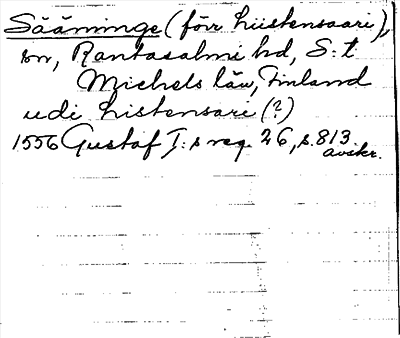 Sääminge (förr Liistensaari),
sn, Rantasalmi hd, S:t
Michels län, Finland
udi Listensari (?)
1556 Gustaf I:s reg. 26, s. 813
avskr.